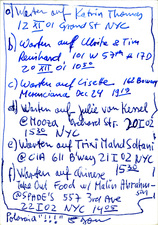 a) Warten auf Katrin Thomas
12 XII 01 Grand St NYC
b) Warten auf Ulrike & Tim
Reinhard, 101 W 57th # 17D
20 XII 01 1030
c) Warten auf Lisette 162 Bowery
Dec 24 1910
d) Warten auf Julie von Kessel
@ Mooza Orchard Str. 20I02
1530 NYC
e) Warten auf Trini Mahd Soltani
@ CIA 611 BWay 21I02 NYC
f) Warten auf Chinese
Take Out Food w/ Malin Abraham-
@ SPADE'S 557 3rd Ave
22I02 NYC 1405
Polaroid